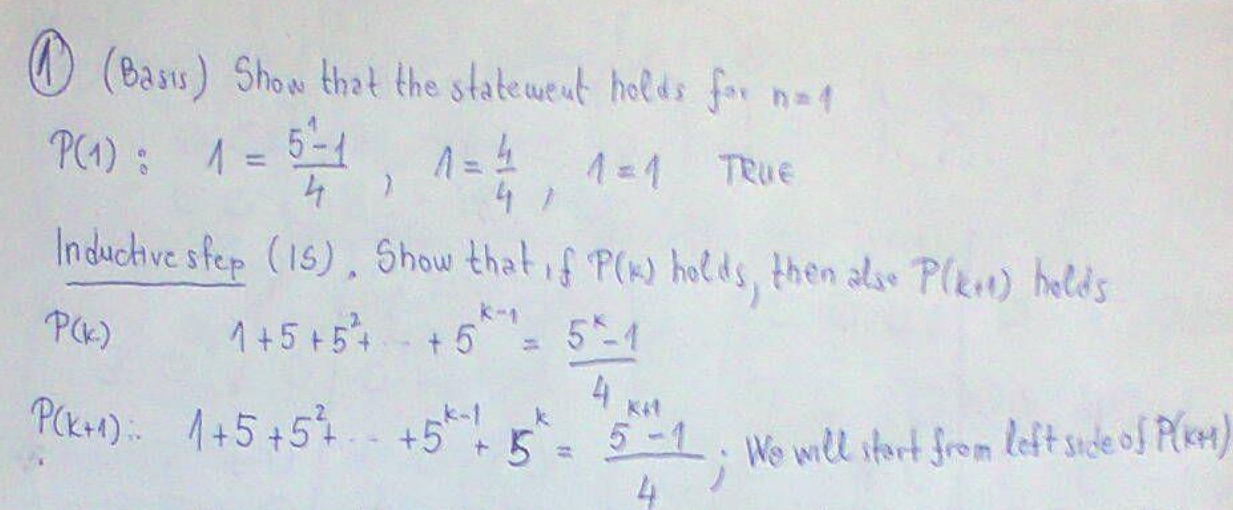 ① (Basis) Show that the statement holds for n=1
P(1): 1 = (5^1-1)/4 , 1 = 4/4 , 1=1 TRUE
Inductive step (IS). Show that if P(k) holds, then also P(k+1) holds
P(k) 1+5+5^2+ ... +5^(k-1) = (5^k-1)/4
P(k+1): 1+5+5^2+ ... +5^(k-1)+5^k = (5^(k+1)-1)/4 ; We will start from left side of P(k+1)